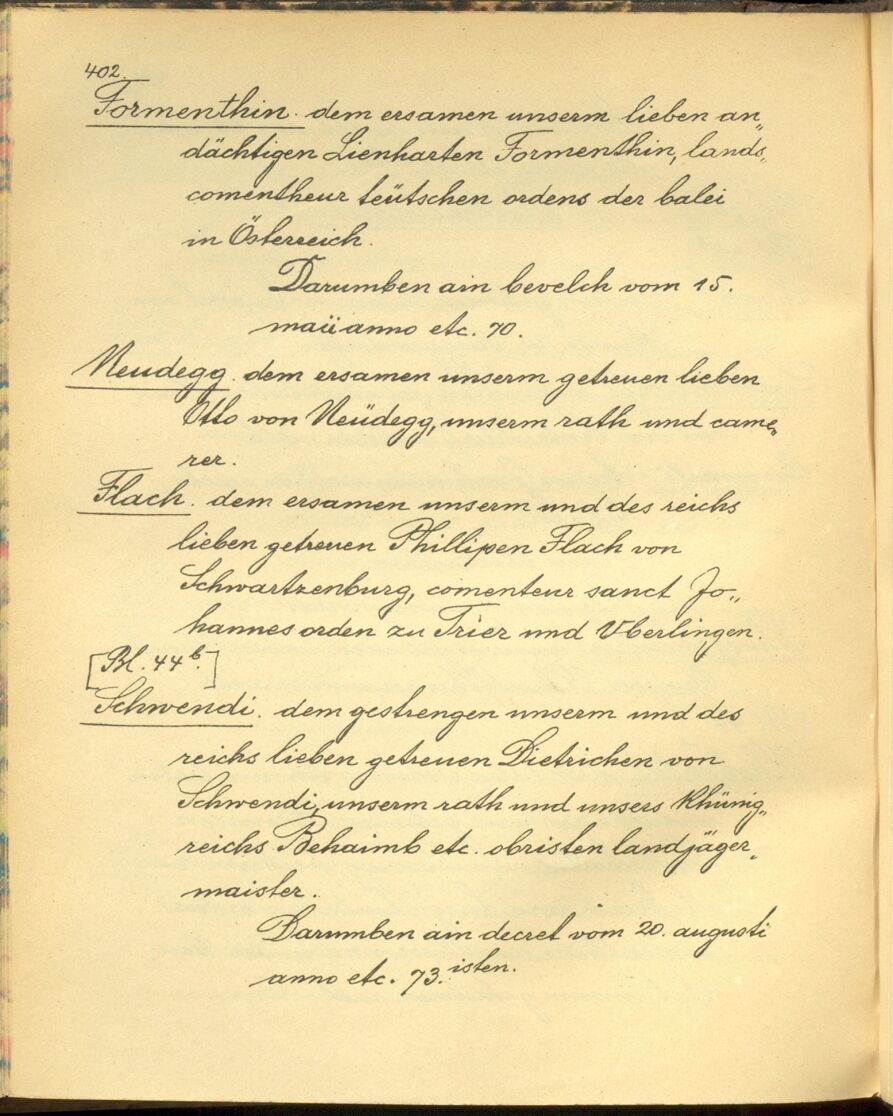 402.
Formenthin. dem ersamen unserm lieben an„
dächtigen Lienharten Formenthin, lands„
comentheur teütschen ordens der balei
in Österreich.
Darumben ain bevelch vom 15.
maii anno etc. 70.
Neudegg. dem ersamen unserm getreuen lieben
Otto von Neüdegg, unserm rath und came„
rer.
Flach. dem ersamen unserm und des reichs
lieben getreuen Phillipen Flach von
Schwartzenburg, comenteur sanct Jo„
hannes orden zu Trier und Vberlingen.
[Bl. 44b.]
Schwendi. dem gestrengen unserm und des
reichs lieben getreuen Dietrichen von
Schwendi, unserm rath und unsers khünig„
reichs Behaimb etc. obristen landjäger„
maister.
Darumben ain decret vom 20. augusti
anno etc. 73.isten.